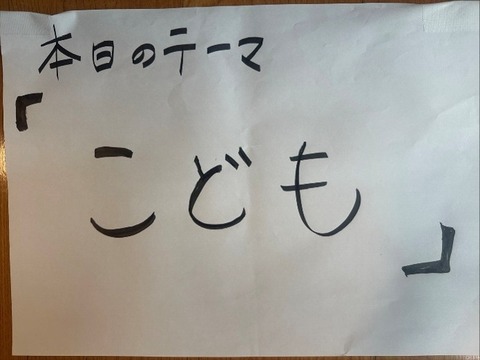 本日のテーマ
『こども』